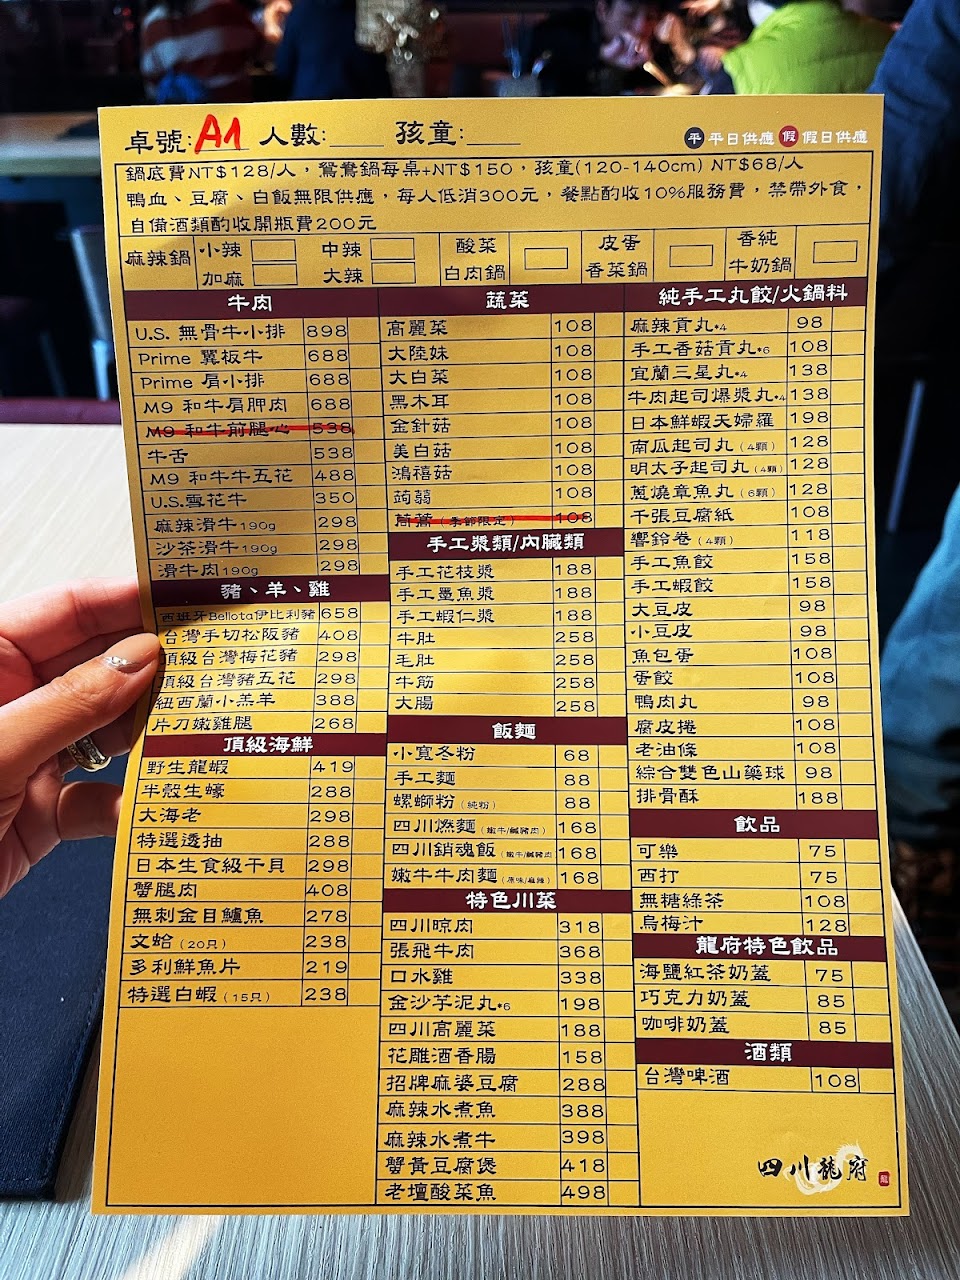 卓號:A1 人數:____ 孩童:____
平 平日供應 假 假日供應
鍋底費NT$128/人，鴛鴦鍋每桌+NT$150，孩童(120-140cm) NT$68/人
鴨血、豆腐、白飯無限供應，每人低消300元，餐點酌收10%服務費，禁帶外食，
自備酒類酌收開瓶費200元
麻辣鍋 小辣 中辣
加麻 大辣
酸菜
白肉鍋
皮蛋
香菜鍋
香純
牛奶鍋
牛肉
U.S. 無骨牛小排 898
Prime 翼板牛 688
Prime 肩小排 688
M9 和牛肩胛肉 688
M9 和牛前腿心 538
牛舌 538
M9 和牛牛五花 488
U.S.雪花牛 350
麻辣滑牛190g 298
沙茶滑牛190g 298
滑牛肉190g 298
豬、羊、雞
西班牙Bellota伊比利豬 658
台灣手切松阪豬 408
頂級台灣梅花豬 298
頂級台灣豬五花 298
紐西蘭小羔羊 388
片刀嫩雞腿 268
頂級海鮮
野生龍蝦 419
半殼生蠔 288
大海老 298
特選透抽 288
日本生食級干貝 298
蟹腿肉 408
無刺金目鱸魚 278
文蛤（20只） 238
多利鮮魚片 219
特選白蝦（15只） 238
蔬菜
高麗菜 108
大陸妹 108
大白菜 108
黑木耳 108
金針菇 108
美白菇 108
鴻禧菇 108
蒟蒻 108
茼蒿（季節限定） 108
手工漿類/內臟類
手工花枝漿 188
手工墨魚漿 188
手工蝦仁漿 188
牛肚 258
毛肚 258
牛筋 258
大腸 258
飯麵
小寬冬粉 68
手工麵 88
螺螄粉（純粉） 88
四川燃麵（嫩牛/鹹豬肉） 168
四川銷魂飯（嫩牛/鹹豬肉） 168
嫩牛牛肉麵（原味/麻辣） 168
特色川菜
四川晾肉 318
張飛牛肉 368
口水雞 338
金沙芋泥丸*6 198
四川高麗菜 188
花雕酒香腸 158
招牌麻婆豆腐 288
麻辣水煮魚 388
麻辣水煮牛 398
蟹黃豆腐煲 418
老壇酸菜魚 498
純手工丸餃/火鍋料
麻辣貢丸*4 98
手工香菇貢丸*6 108
宜蘭三星丸*4 138
牛肉起司爆漿丸*4 138
日本鮮蝦天婦羅 198
南瓜起司丸（4顆） 128
明太子起司丸（4顆） 128
蔥燒章魚丸（6顆） 128
千張豆腐紙 108
響鈴卷（4顆） 118
手工魚餃 158
手工蝦餃 158
大豆皮 98
小豆皮 98
魚包蛋 108
蛋餃 108
鴨肉丸 98
腐皮捲 108
老油條 108
綜合雙色山藥球 98
排骨酥 188
飲品
可樂 75
西打 75
無糖綠茶 108
烏梅汁 128
龍府特色飲品
海鹽紅茶奶蓋 75
巧克力奶蓋 85
咖啡奶蓋 85
酒類
台灣啤酒 108
四川龍府